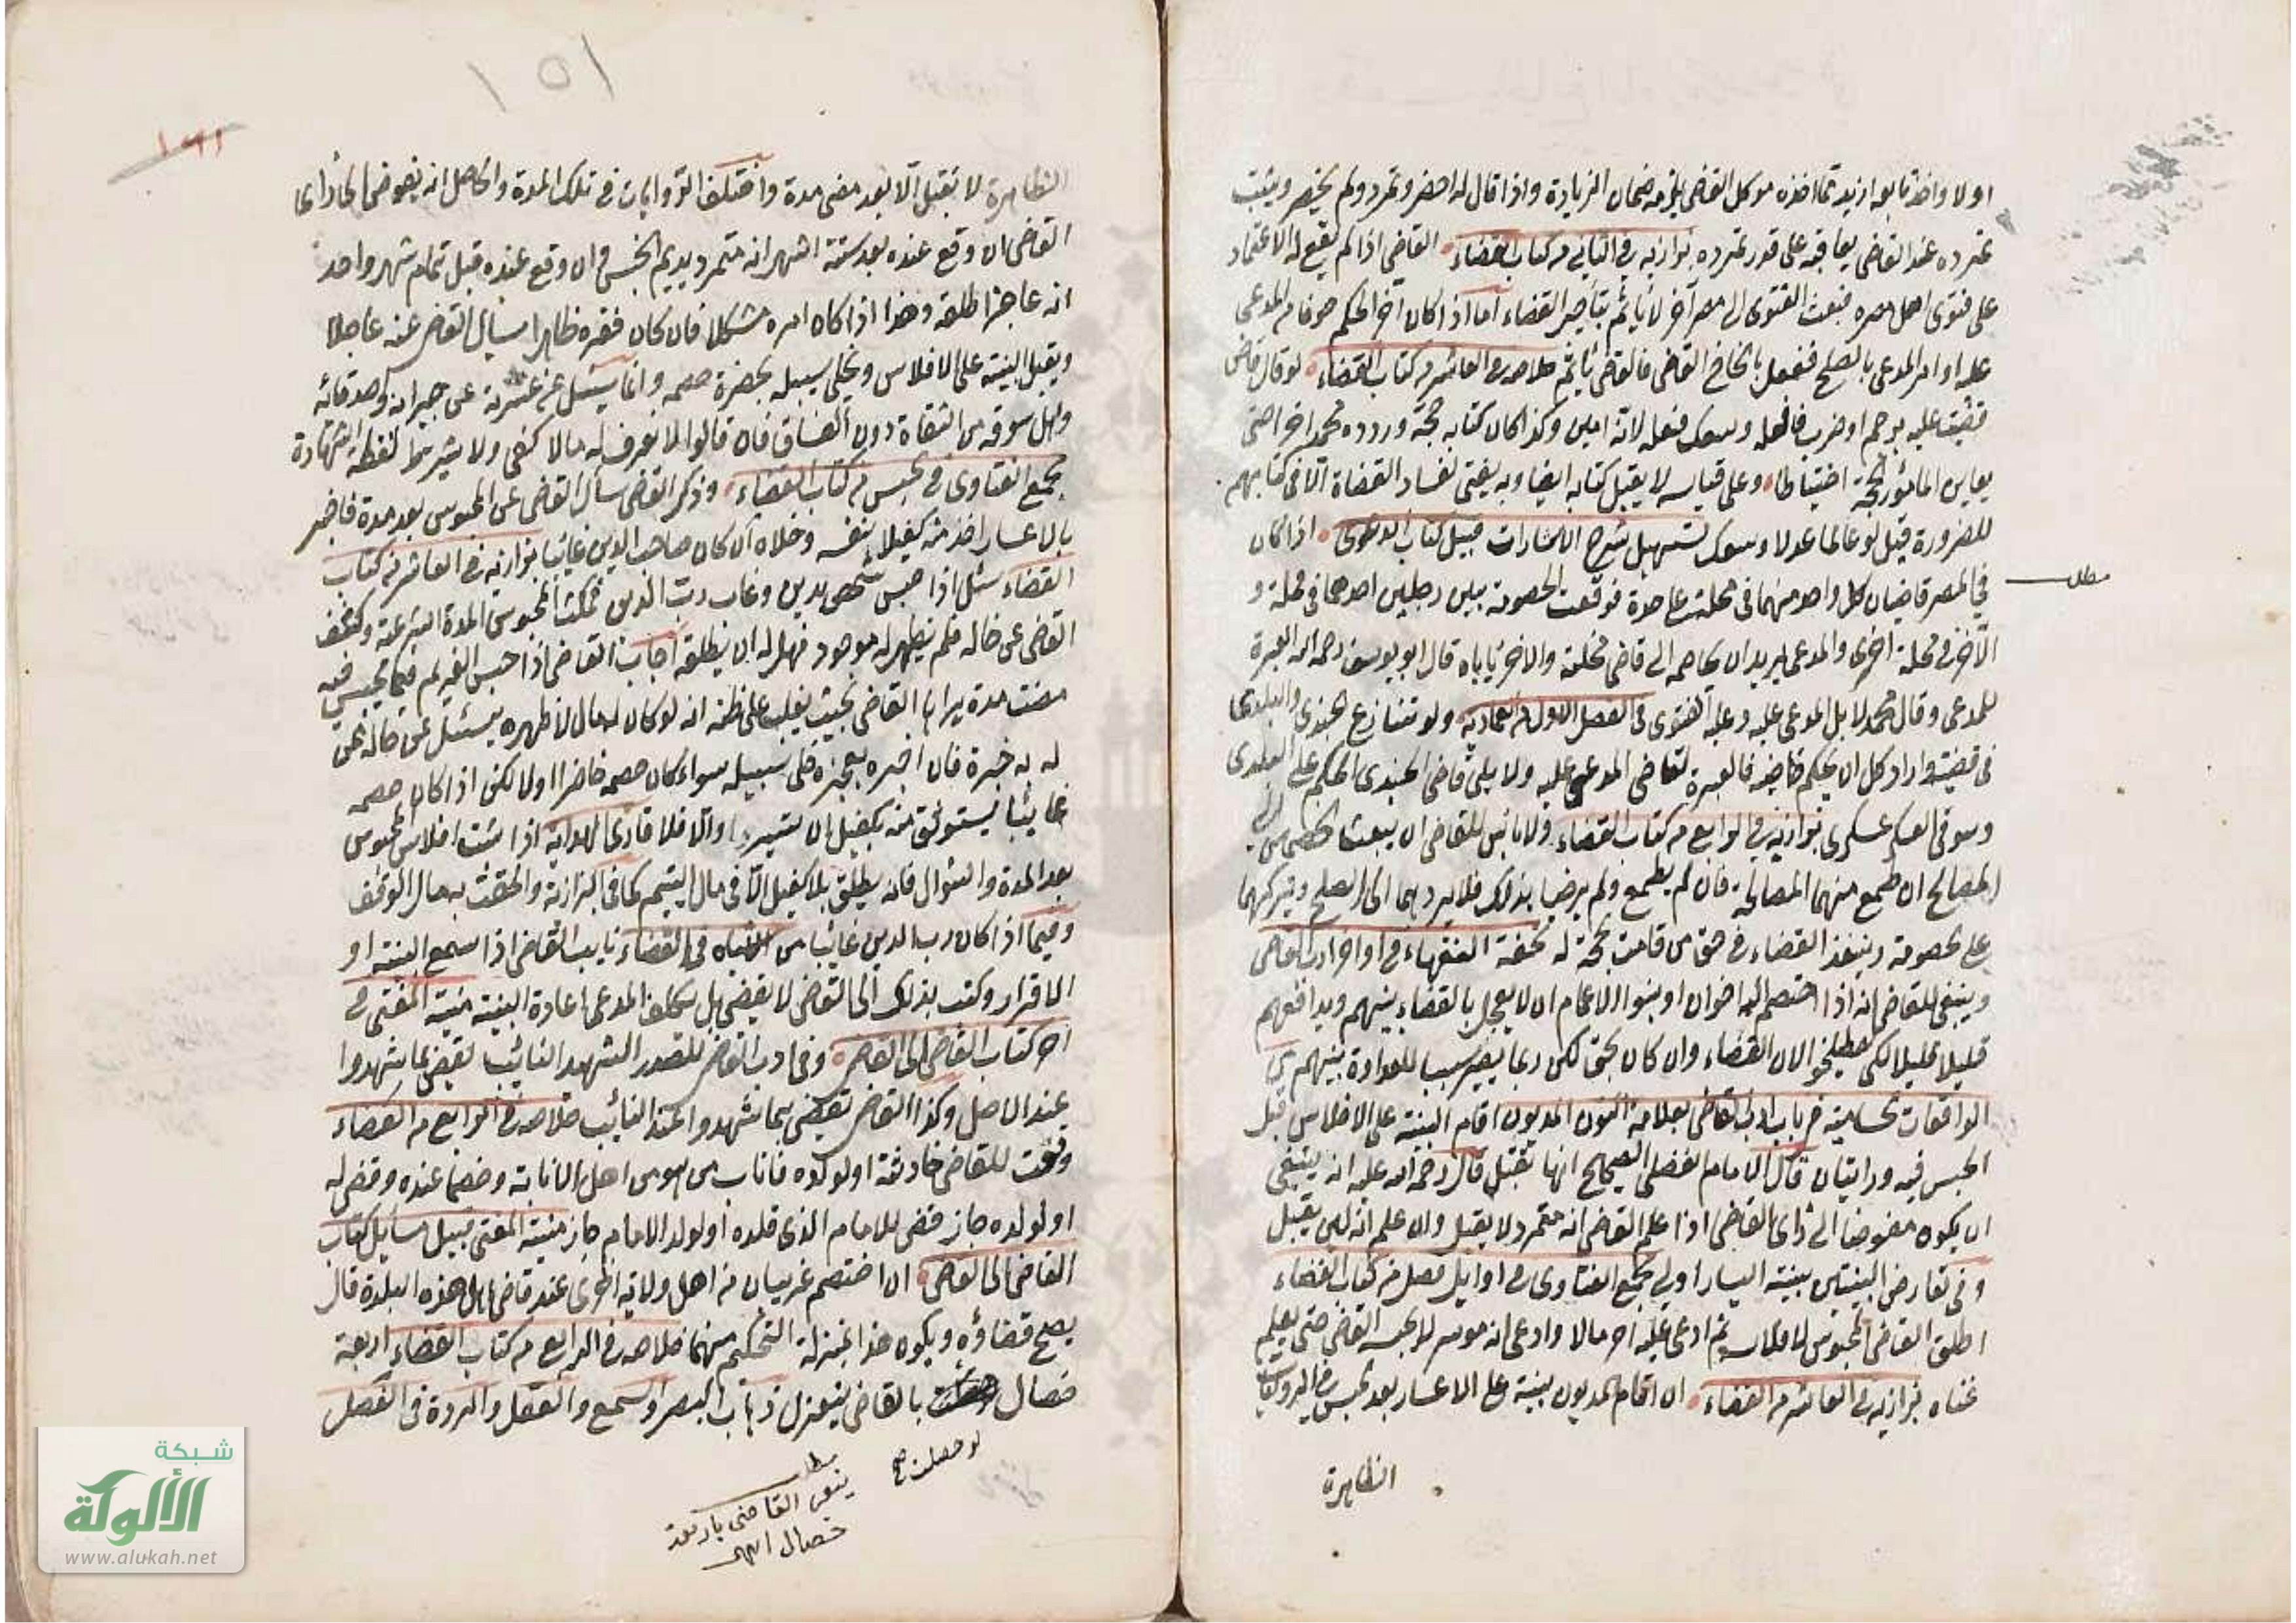 اولا واخذ تابعه ازيد مما اخذه موكل القاضي يلزمه ضمان الزيادة واذا قال له احضر وتمرد ولم يحضر ويثبت
تمرده عند القاضي يعاقبه على قدر تمرده بزازيه في الثاني من كتاب القضاء القاضي اذا لم يقع له الاعتماد
على فتوى اهل مصره فبعث الفتوى الى مصر آخر لا يأثم بتأخير القضاء اما اذا كان آخر الحكم المدعى
عليه او امر المدعي بالصلح ففعل القاضي فالقاضي يأثم خلاصه في العاشر من كتاب القضاء لو قال قاض
قضيت عليه برجم او ضرب فافعله وسعك فعله لانه امين وكذا كان كتابه حجة ورده محمد اخرا حتى
يعاين الحجة احتياطا وعلى قياسه لا يقبل كتابه ايضا وبه يفتى لفساد القضاة الا في كتابهم
للضرورة قيل لو عالما عدلا وسعك تسهيل شرح الاشارات قبيل كتاب الدعوى اذا كان
مطلب
في المصر قاضيان كل واحد منهما في محلة على حدة فوقعت الخصومة بين رجلين احدهما في محلة و
الآخر في محلة اخرى والمدعي يريد ان يخاصمه الى قاضي محلته والاخر يأباه قال ابو يوسف رحمه الله العبرة
للمدعي وقال محمد لا بل للمدعى عليه وعليه الفتوى في الفصل الاول من العمادية ولو تنازع الجندي والبلدي
في قضية واراد كل ان يحكم قاضيه فالعبرة لقاضي المدعى عليه ولا يلي قاضي الجندي الحكم على البلدي
وسوقي العسكر عسكري بزازيه في الرابع من كتاب القضاء ولا بأس للقاضي ان يبعث الخصمين الى
المصالح ان طمع منهما المصالحة فان لم يطمع ولم يرضيا بذلك فلا يردهما الى الصلح ويتركهما
على الخصومة وينفذ القضاء في حق من قامت الحجة له تحفة الفقهاء في اواخر ادب القاضي
وينبغي للقاضي انه اذا اختصم اليه اخوان او بنوا الاعمام ان لا يعجل بالقضاء بينهم ويدافعهم
قليلا قليلا لكي يصطلحوا لان القضاء وان كان بحق لكن ربما يصير سببا للعداوة بينهم
الواقعات الحسامية في باب ادب القاضي بعلامة النون المديون اقام البينة على الافلاس قبل
الحبس فيه روايتان قال الامام الفضلي الصحيح انها تقبل قال رحمة الله عليه انه ينبغي
ان يكون مفوضا الى رأي القاضي اذا علم القاضي انه متمرد لا يقبل وان علم انه لين يقبل
وفي تعارض البينتين بينة اليسار اولى مجمع الفتاوى في اوايل فصل من كتاب القضاء
اطلق القاضي المحبوس لافلاسه ثم ادعى عليه آخر مالا وادعى انه موسر لا يحبسه القاضي حتى يعلم
غناه بزازيه في العاشر من القضاء ان اقام المديون بينة على الاعسار بعد الحبس في الروايات
الظاهرة
الظاهرة لا تقبل الا بعد مضي مدة واختلف الروايات في تلك المدة والحاصل انه يفوض الى رأي
القاضي ان وقع عنده بعد ستة اشهر انه متمرد يديم الحبس وان وقع عنده قبل تمام شهر واحد
انه عاجز اطلقه وهذا اذا كان امره مشكلا فان كان فقره ظاهرا يسأل القاضي عنه عاجلا
ويقبل البينة على الافلاس ويخلي سبيله بحضرة خصمه وانما يسئل عن عسرته عن جيرانه واصدقائه
واهل سوقه من الثقاة دون الفساق فان قالوا لا نعرف له مالا كفى ولا يشترط لفظة الشهادة
مجمع الفتاوى في الحبس من كتاب القضاء وذكر القاضي سأل القاضي عن المحبوس بعد مدة فاخبر
بالاعسار اخذ منه كفيلا بنفسه وخلاه ان كان صاحب الدين غايبا بزازيه في العاشر من كتاب
القضاء سئل اذا حبس شخص بدين وغاب رب الدين فمكث المحبوس المدة الشرعية وكشف
القاضي عن حاله فلم يظهر له موجود فهل له ان يطلقه اجاب القاضي اذا حبس الغريم فيما يحبس فيه
مضت مدة يراها القاضي بحيث يغلب على ظنه انه لو كان له مال لاظهره يسئل عن حاله عمن
له به خبرة فان اخبره بعجزه خلى سبيله سواء كان خصمه حاضرا اولا لكن اذا كان خصمه
غائبا يستوثق منه بكفيل ان تيسر والا فلا قارئ الهداية اذا ثبت افلاس المحبوس
بعد المدة والسؤال فانه يطلق بلا كفيل الا في مال اليتيم كما في البزازية والحقت به مال الوقف
وفيما اذا كان رب الدين غائبا من الاشباه في القضاء نايب القاضي اذا سمع البينة او
الاقرار وكتب بذلك الى القاضي لا يقضي بل يكلف المدعي اعادة البينة منية المفتي في
آخر كتاب القاضي الى القاضي وفي ادب القاضي للصدر الشهيد النائب يقضي بما شهدوا
عند الاصل وكذا القاضي يقضي بما شهدوا عند النائب خلاصه في الرابع من القضاء
وقعت للقاضي حادثة او لولده فاناب من هو من اهل الانابة وخصما عنده وقضى له
او لولده جاز قضى للامام الذي قلده او لولد الامام جاز منية المفتي قبيل مسايل كتاب
القاضي الى القاضي ان اختصم غريبان من اهل ولاية اخرى عند قاضي اهل هذه البلدة قال
يصح قضاؤه ويكون هذا بمنزلة التحكيم منهما خلاصه في الرابع من كتاب القضاء اربعة
خصال بالقاضي ينعزل ذهاب البصر والسمع والعقل والردة في الفصل
لو حصلت صح
مطلب
ينعزل القاضي باربعة
خصال
١٥١
شبكة
الألوكة
www.alukah.net